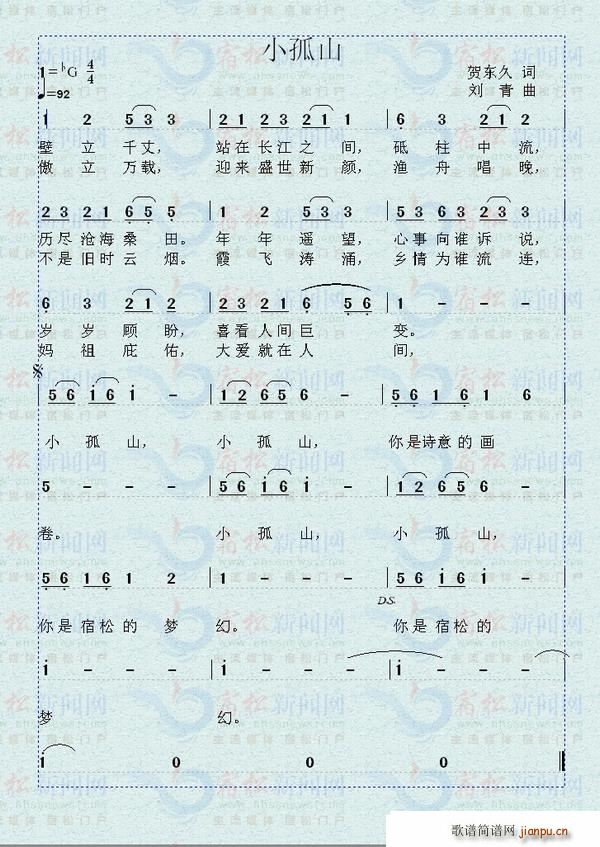 小孤山
1=♭G 4/4
♩=92
贺东久 词
刘 青 曲
1 2 5 3 3 | 2 1 2 3 2 1 | 6 3 2 1 2
壁 立 千丈, 站在长江之 间, 砥 柱 中 流,
傲 立 万载, 迎来盛世新 颜, 渔 舟 唱 晚,
2 3 2 1 6 5 5 | 1 2 5 3 3 | 5 3 6 3 2 3 3
历尽沧海桑 田。 年 年 遥 望, 心事向谁诉 说,
不是旧时云 烟。 霞 飞 涛 涌, 乡情为谁流 连,
6 3 2 1 2 | 2 3 2 1 6 5 6 | 1 - - -
岁 岁 顾 盼, 喜看人间巨 变。
妈 祖 庇 佑, 大爱就在人 间,
5 6 i 6 i - | 1 2 6 5 5 - | 5 6 1 6 1 6
小 孤 山, 小 孤 山, 你是诗意的画
5 - - - | 5 6 i 6 i - | 1 2 6 5 6 -
卷。 小 孤 山, 小 孤 山,
5 6 1 6 1 2 | 1 - - - | 5 6 i 6 i -
D.S.
你是宿松的 梦 幻。 你是宿松的
i - - - | i - - - | i - - -
梦 幻。
i 0 0 0
歌谱简谱网 jianpu.cn
宿松新闻网